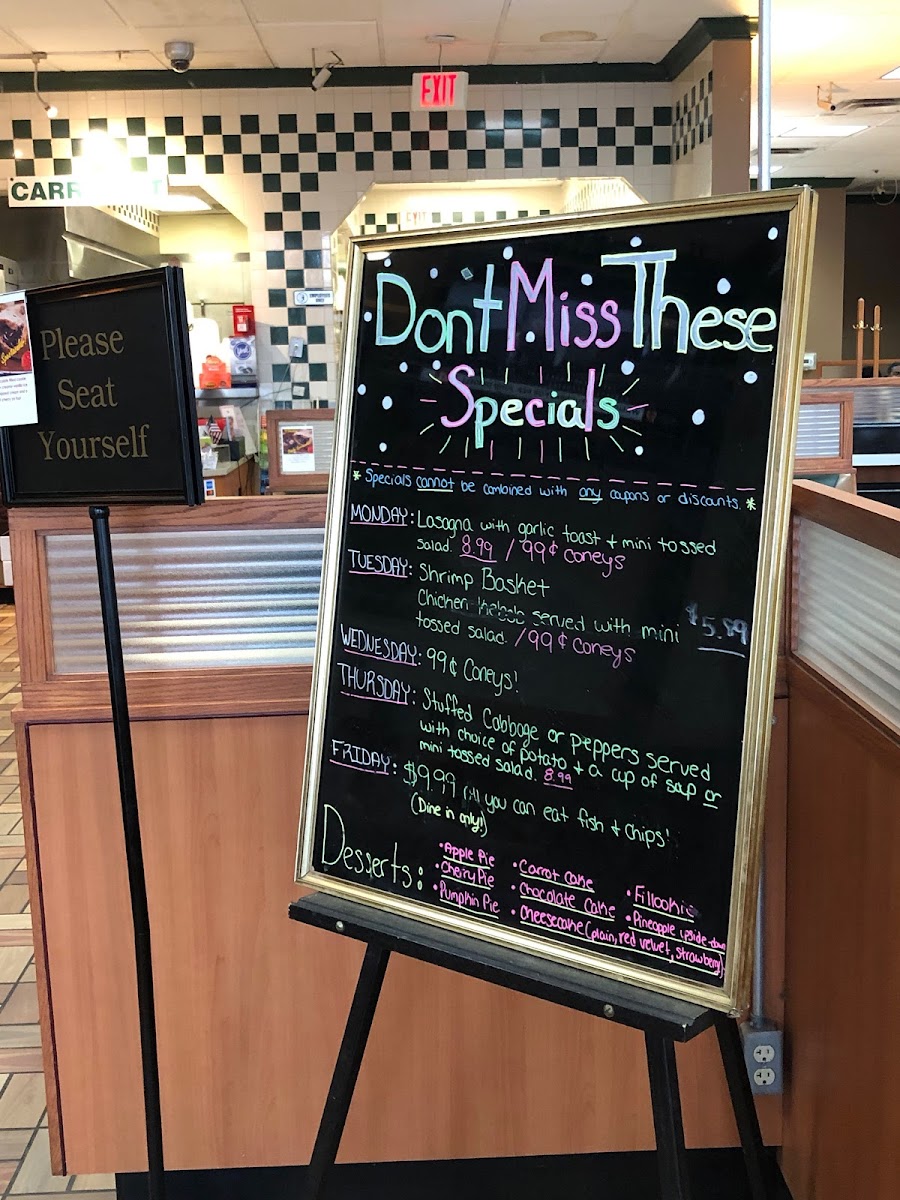 EXIT
CARR
Please
Seat
Yourself
Dont Miss These
Specials
* Specials cannot be combined with any coupons or discounts. *
MONDAY: Lasagna with garlic toast + mini tossed
salad. 8.99 / 99¢ Coneys
TUESDAY: Shrimp Basket
Chicken Kebob served with mini $5.89
tossed salad. / 99¢ Coneys
WEDNESDAY: 99¢ Coneys!
THURSDAY: Stuffed Cabbage or peppers served
with choice of potato + a cup of soup or
mini tossed salad. 8.99
FRIDAY: $9.99 All you can eat fish & chips!
(Dine in only!)
Desserts:
• Apple Pie
• Cherry Pie
• Pumpkin Pie
• Carrot Cake
• Chocolate Cake
• Cheesecake (plain, red velvet, strawberry)
• Fillookie
• Pineapple upside-down